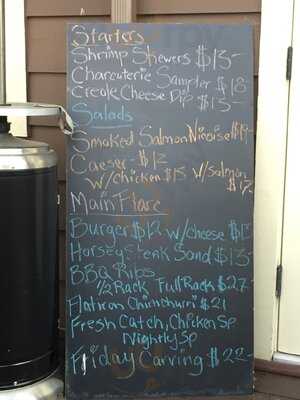 Starters
Shrimp Skewers $13-
Charcuterie Sampter $18
Creole Cheese Dip $13-
Salads
Smoked Salmon Nicoise $19-
Caeser - $12
w/chicken $15 w/salmon
$17-
Main Flare
Burger $12 w/cheese $13
Horsey Stenk Sand $13-
BBQ Ribs
1/2 Rack Full Rack $27-
Flatiron Chimichurri $21
Fresh Catch, Chicken Sp
Nightly Sp
Friday Carving $22-